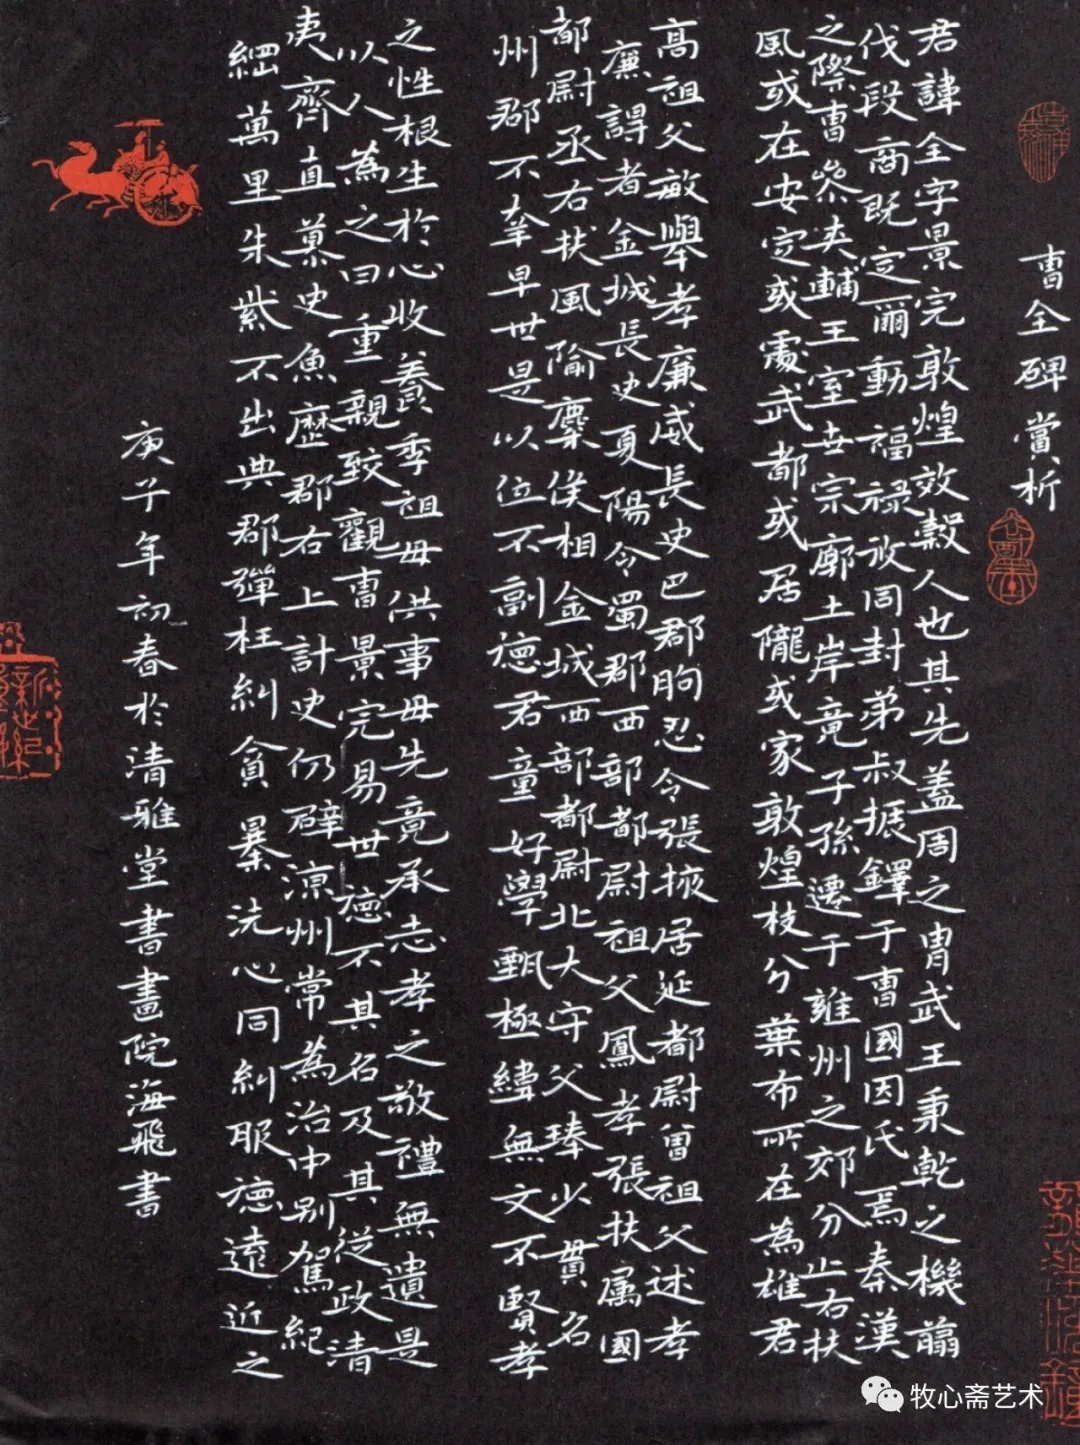 曹全碑賞析
君諱全字景完敦煌效穀人也其先蓋周之胄武王秉乾之機翦
伐段商既定爾動福祿攸同封弟叔振鐸于曹國因氏焉秦漢
之際曹參夾輔王室世宗廓土岸竟子孫遷于雍州之郊分止右扶
風或在安定或處武都或居隴或家敦煌枝分葉布所在為雄君
高祖父敏舉孝廉威長史巴郡朐忍令張掖居延都尉曾祖父述孝
廉謁者金城長史夏陽令蜀郡西部都尉祖父鳳孝張扶属國
都尉丞右扶風隃麋侯相金城西部都尉北大守父琫少貫名
州郡不幸早世是以位不副德君童好學甄極緯無文不賢孝
之性根生於心收養季祖母供事母先竟承志孝之敬禮無遺是
以人為之曰重親致觀曹景完易世德不其名及其從政清
夷齊直慕史魚歷郡右上計史仍辟涼州常為治中別駕紀
綱萬里朱紫不出典郡彈枉糾貪暴洗心同糾服德遠近之
庚子年初春於清雅堂書畫院海飛書
牧心斋艺术